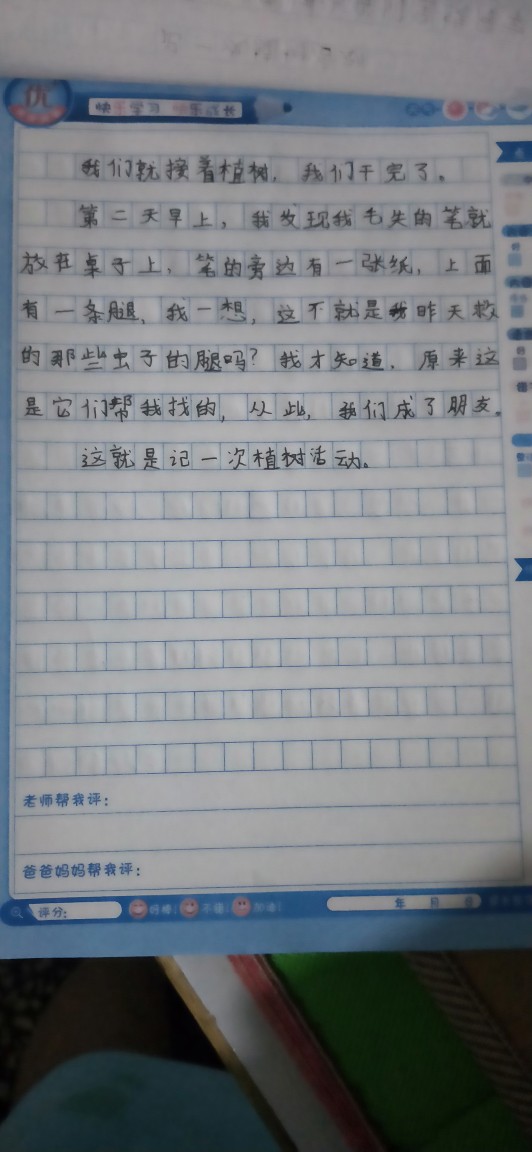 优
快乐学习 快乐成长
我们就接着植树，我们干完了。
第二天早上，我发现我毛失的笔就
放在桌子上，笔的旁边有一张纸，上面
有一条腿，我一想，这不就是我昨天救
的那些虫子的腿吗？我才知道，原来这
是它们帮我找的，从此，我们成了朋友。
这就是记一次植树活动。
老师帮我评：
爸爸妈妈帮我评：
评分：
好棒！ 不错！ 加油！
年 月 日